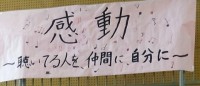 感動
～聴いてる人を、仲間に、自分に～